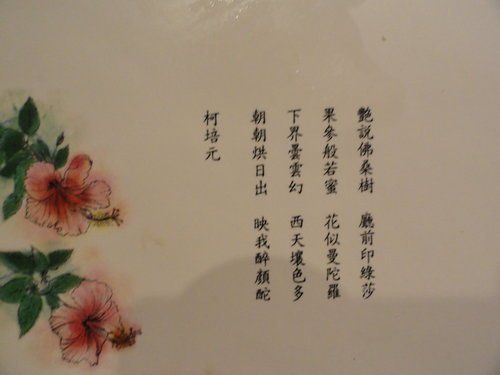 艷說佛桑樹 廳前印綠莎
果參般若蜜 花似曼陀羅
下界曇雲幻 西天壞色多
朝朝烘日出 映我醉顏酡
柯培元